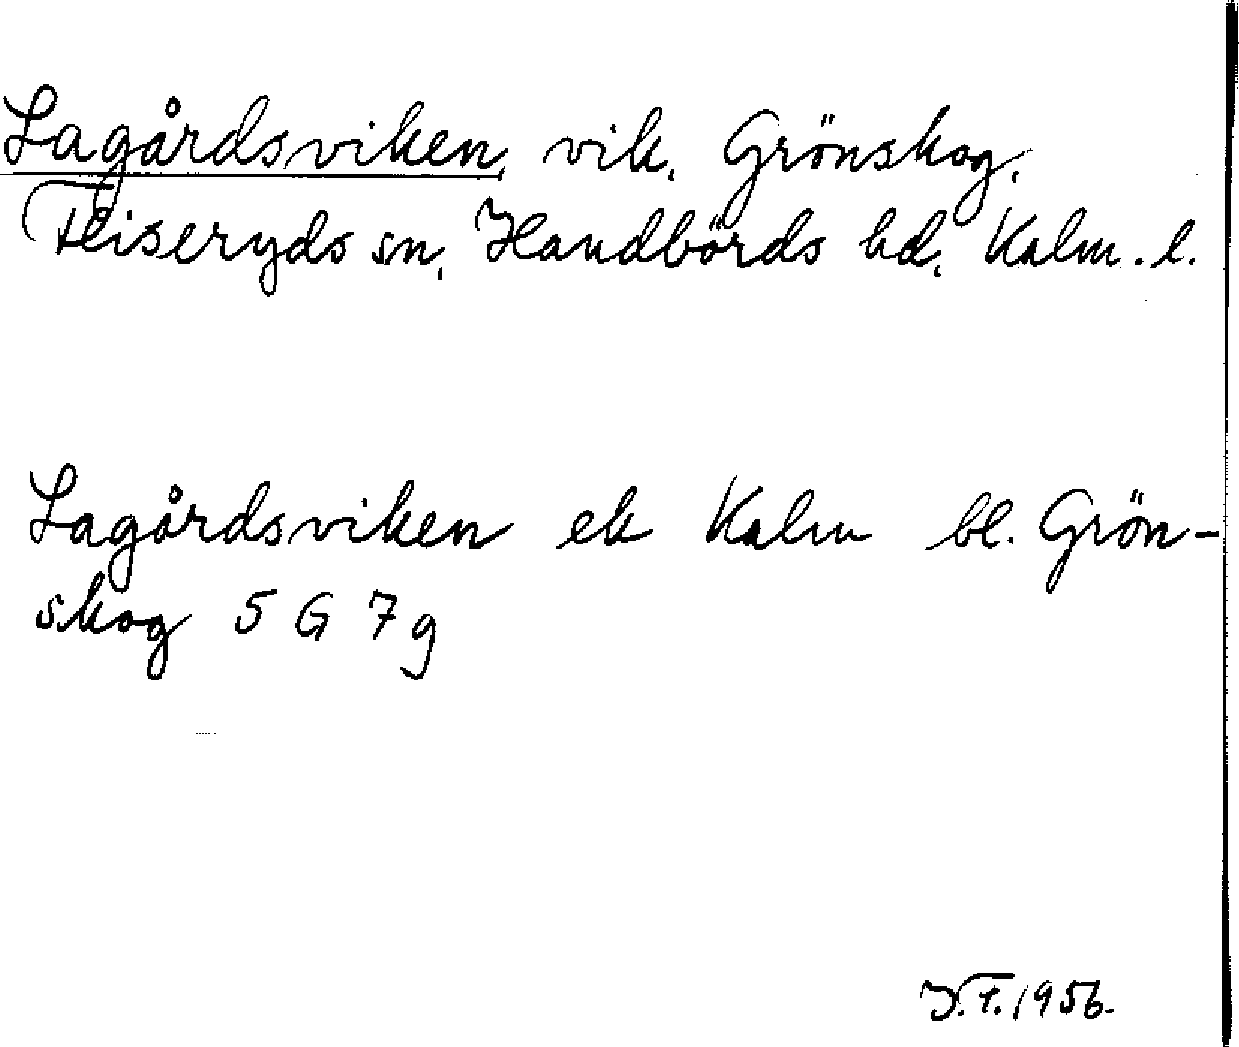 Lagårdsviken, vik, Grönskog,
Fliseryds sn, Handbörds hd, Kalm. l.
Lagårdsviken ek Kalm bl. Grön-
skog 5 G 7 g
J.F. 1956.